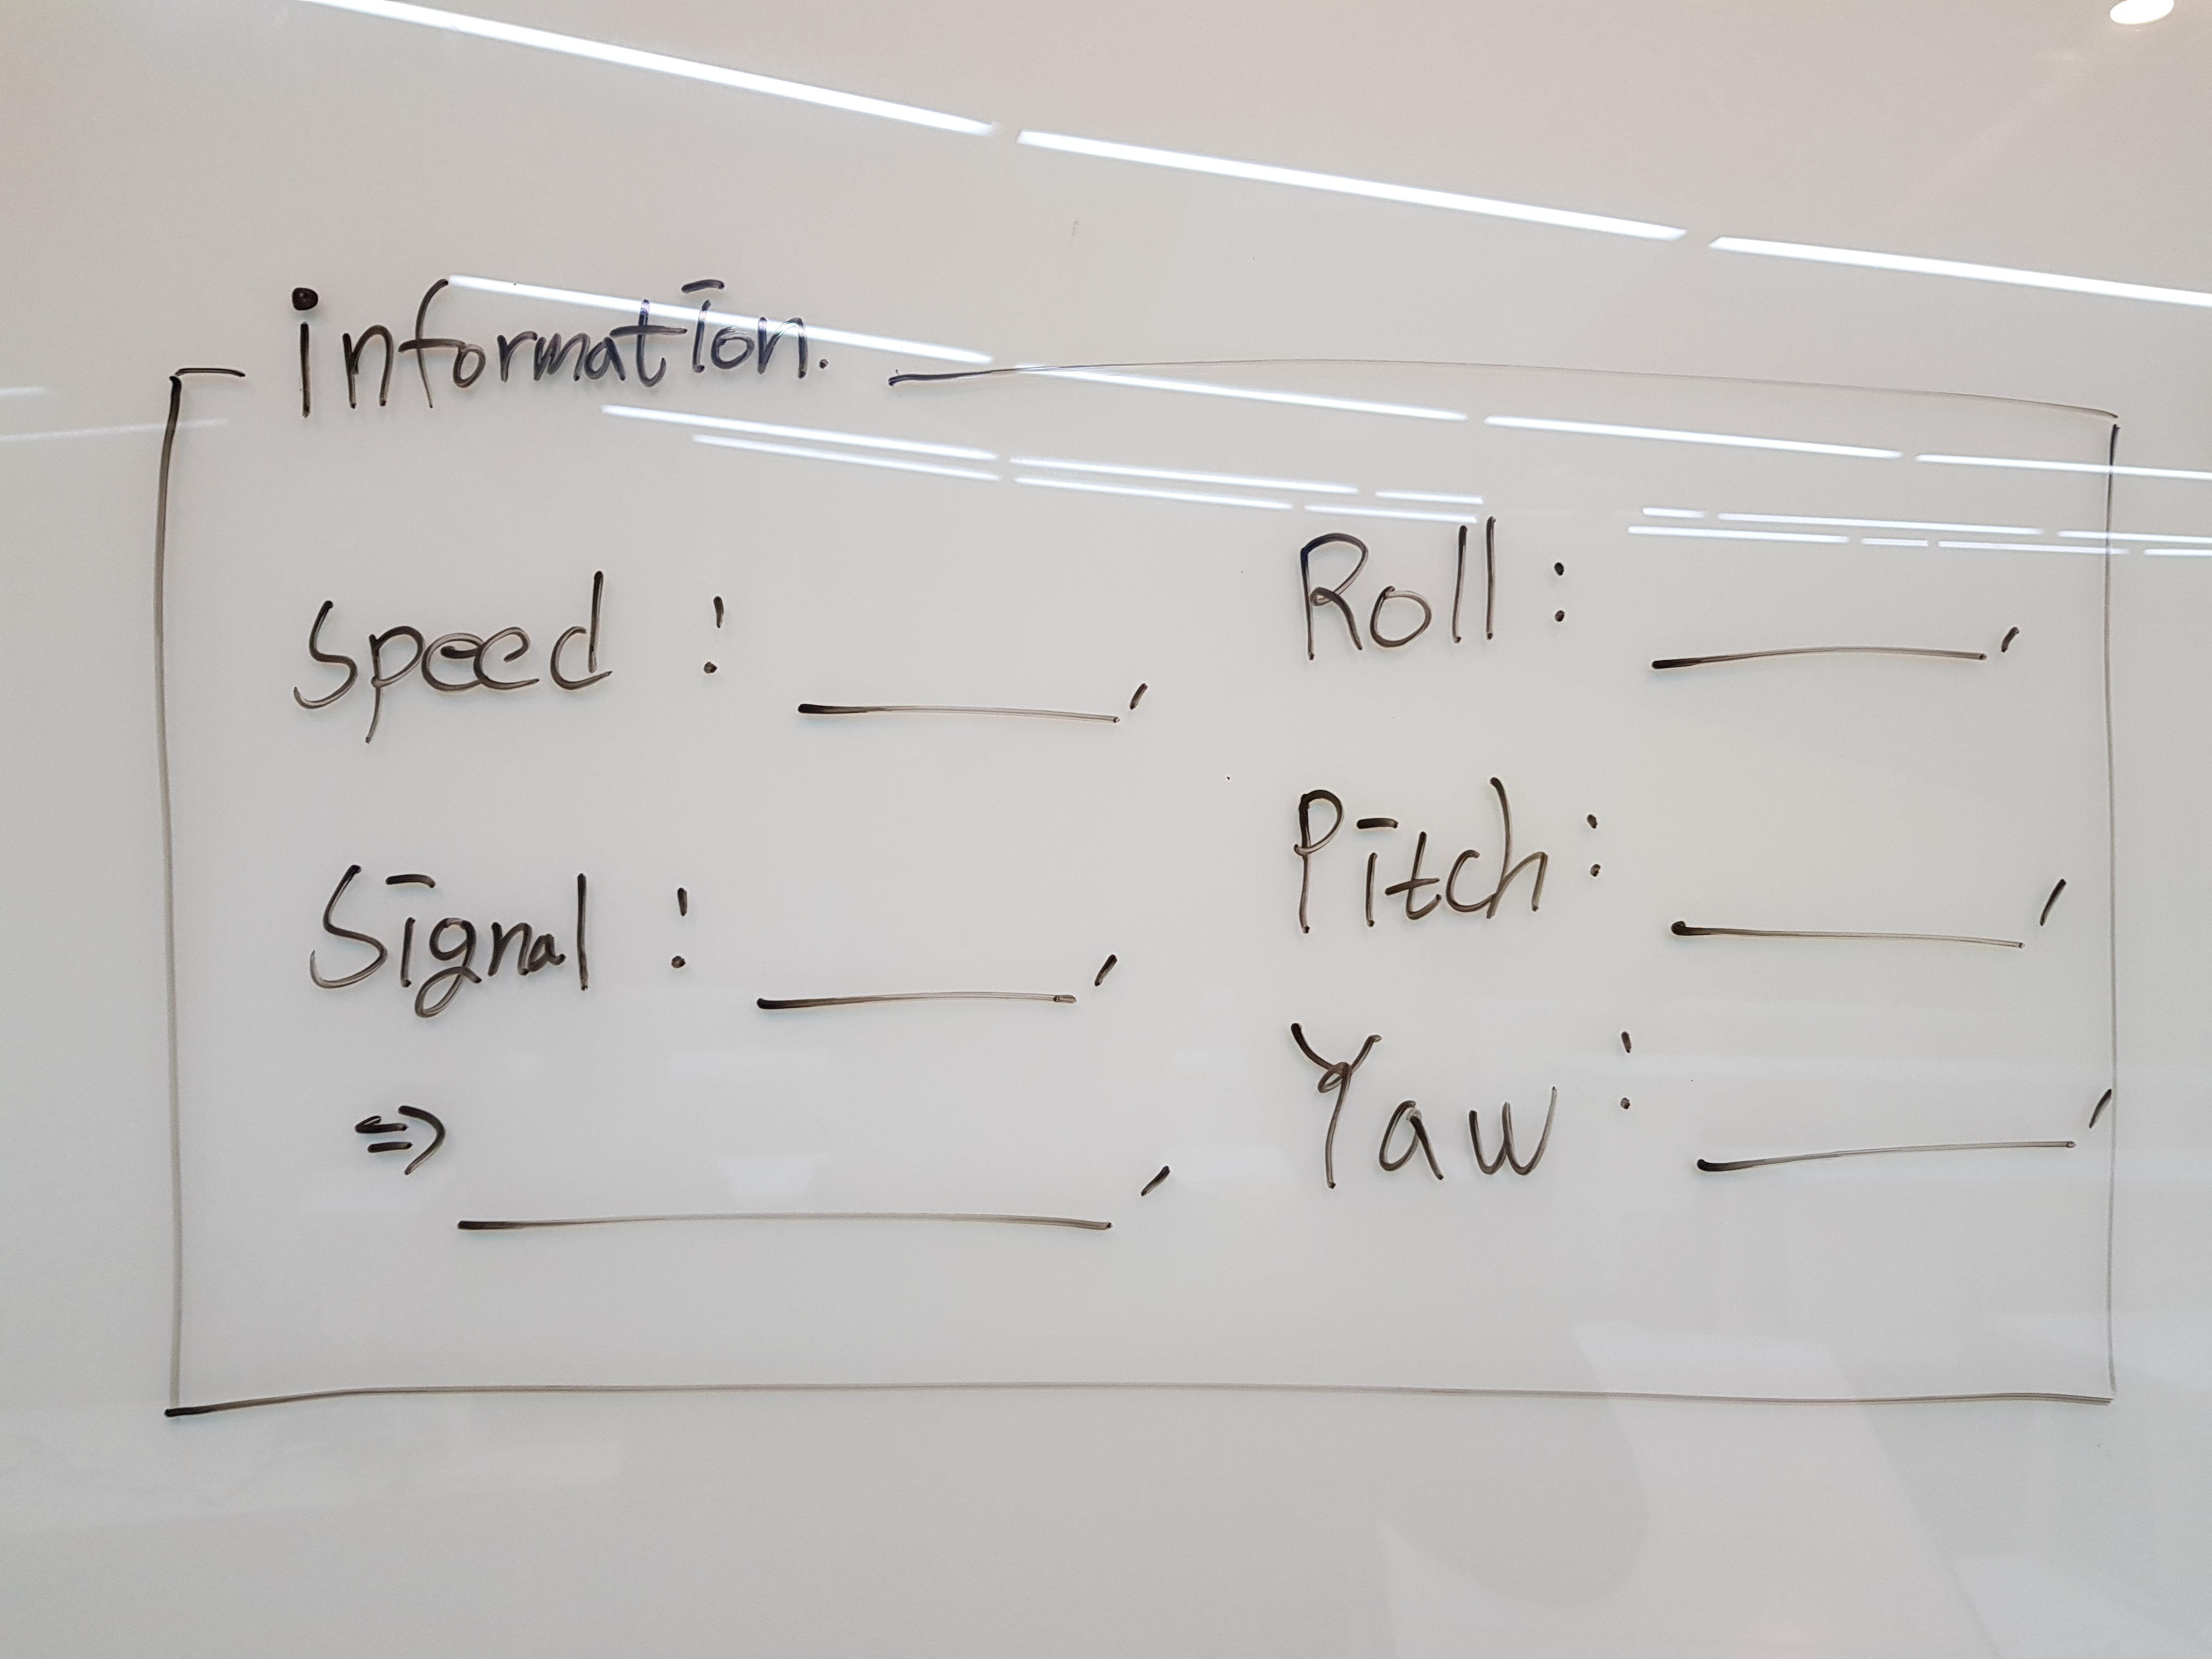 information.
Speed : ____,
Signal : ____,
⇒ ________,
Roll : ____,
Pitch : ____,
Yaw : ____,